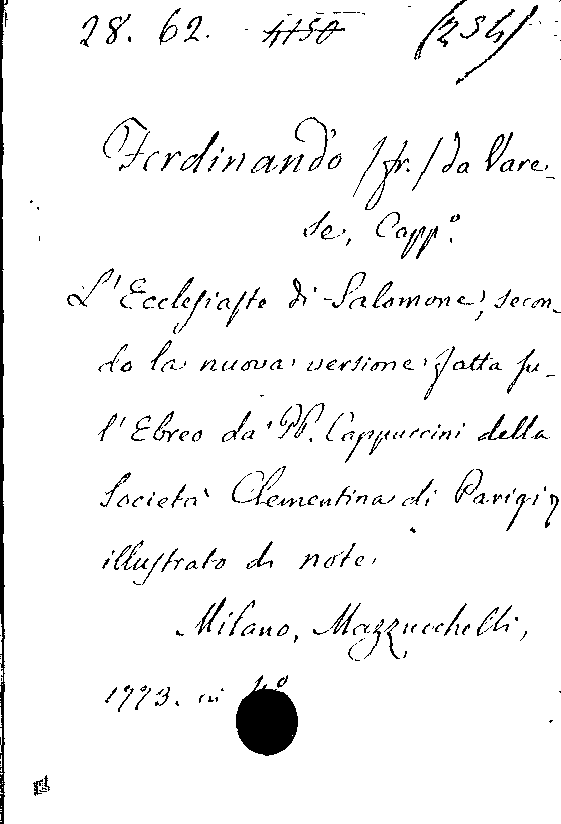 28. 62. 4150 (234)
Ferdinando (fr.) da Vare-
se, Capp.º
L'Ecclesiaste di Salomone, secon-
do la nuova versione fatta su-
l'Ebreo da' PP. Cappuccini della
Società Clementina di Parigi,
illustrato di note.
Milano, Mazzucchelli,
1773. in 4º